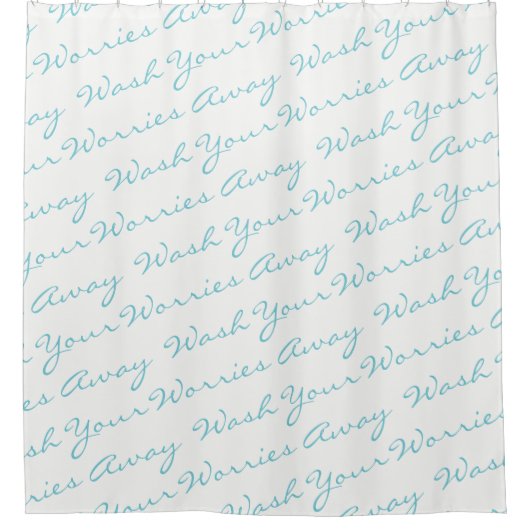 Worries Away
Away Wash Your Worries
Your Worries Away Wash Your
Away Wash Your Worries Away
Your Worries Away Wash Your
Away Wash Your Worries Away
Your Worries Away Wash Your
Away Wash Your Worries Away
Wash Your Worries Away Wash Your
Worries Away Wash Your Worries
Your Worries Away Wash
Away Wash